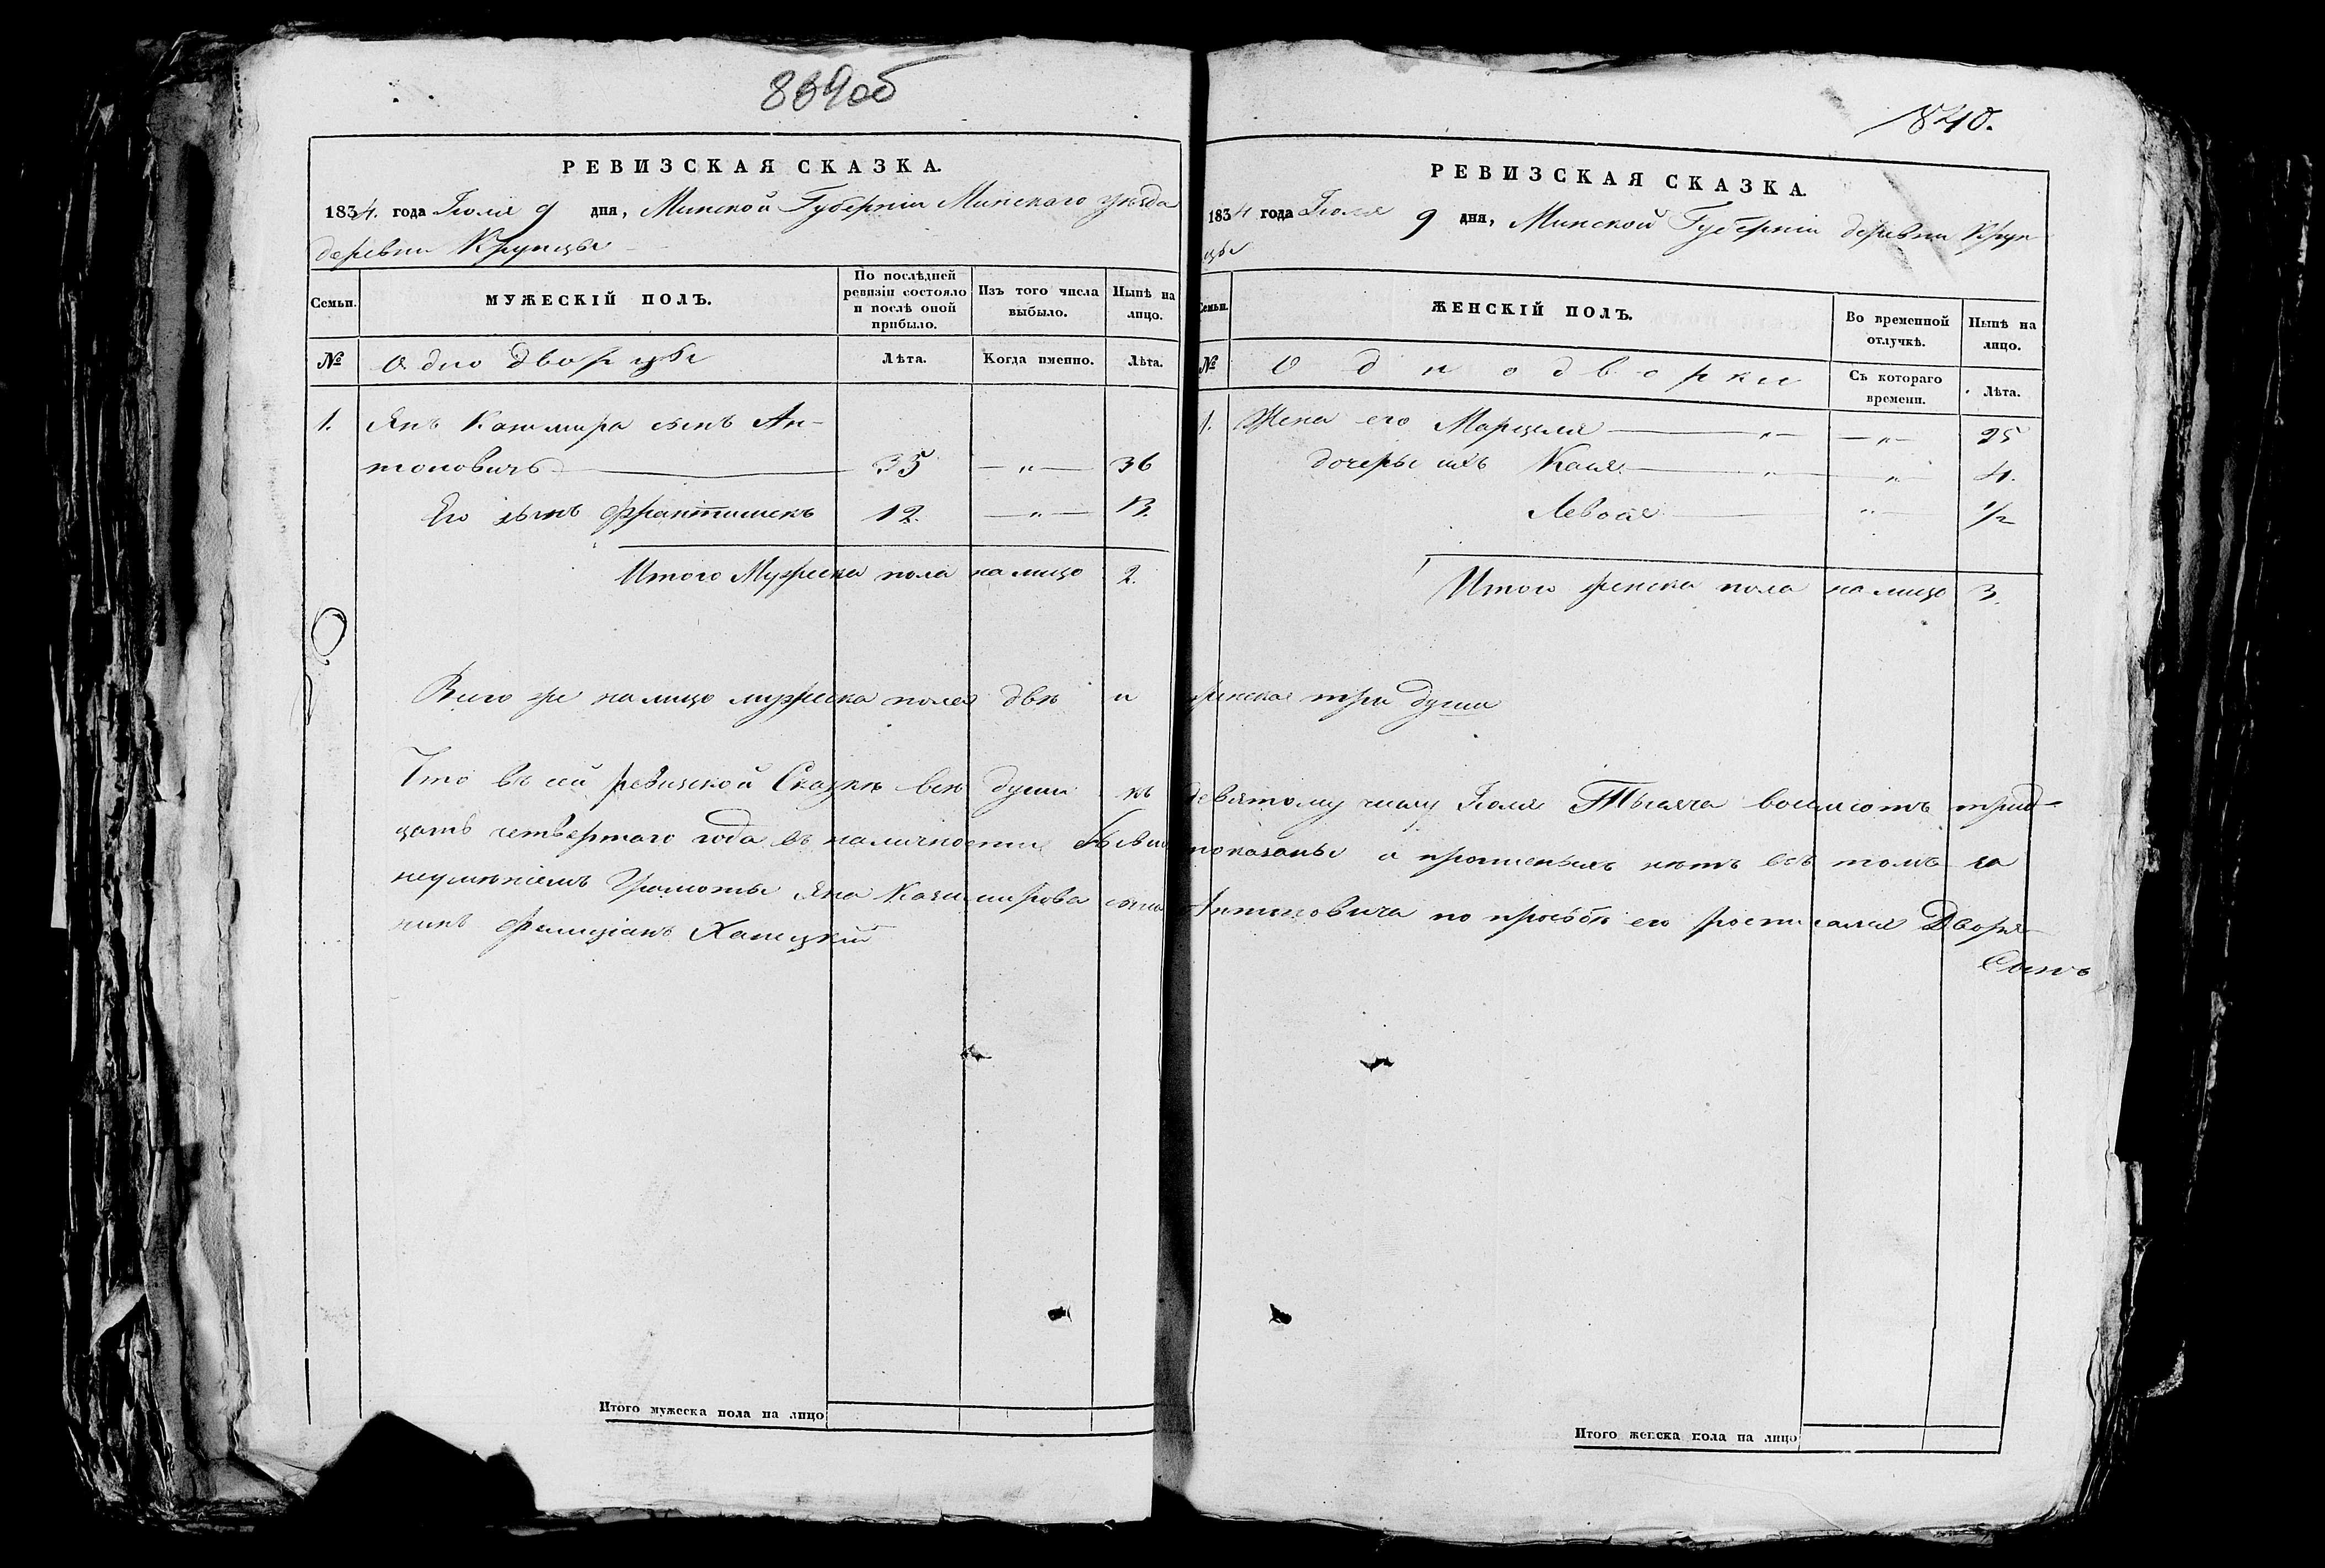 839об
РЕВИЗСКАЯ СКАЗКА.
1834. года Іюля 9 дня, Минской Губерніи Минскаго уѣзда
деревни Крупцы
Семьи.
МУЖЕСКІЙ ПОЛЪ.
По послѣдней ревизіи состояло и послѣ оной прибыло.
Изъ того числа выбыло.
Нынѣ на лицо.
№
Однодворцы
Лѣта.
Когда именно.
Лѣта.
1. Янъ Казимира сынъ Ан-
тоновичъ 35 — „ — 36
Его сынъ Франтишекъ 12. — „ — 13.
Итого Мужеска пола на лицо 2.
Всего же на лицо мужеска пола двѣ и
Что въ сей ревизской Сказкѣ всѣ души къ
цать четвертаго года въ наличности бывшіе
неумѣніемъ Грамоты Яна Казимирова сына
нинъ Фелиціанъ
Итого мужеска пола на лицо
840.
РЕВИЗСКАЯ СКАЗКА.
1834 года Іюля 9 дня, Минской Губерніи деревни Круп
цы
Семьи.
ЖЕНСКІЙ ПОЛЪ.
Во временной отлучкѣ.
Нынѣ на лицо.
№
Однодворки
Съ котораго времени.
Лѣта.
1. Жена его Марцеля — „ — — „ — 25
дочеры ихъ Кася — „ — „ — 4.
„ — 1/2
Итого женска пола на лицо 3.
женска три души
девятому числу Іюля Тысяча восемсотъ трид-
показаны а прописныхъ нѣтъ въ томъ за
Антоновича по прозбѣ его росписался Дворя-
Сынъ
Итого женска пола на лицо